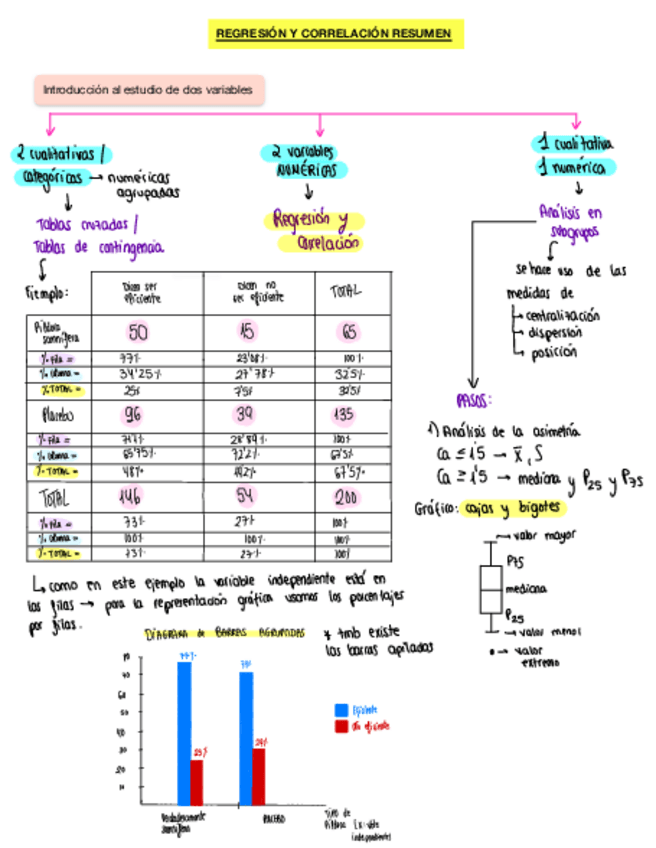 REGRESIÓN Y CORRELACIÓN RESUMEN
Introducción al estudio de dos variables
2 cualitativas /
categóricas → numéricas
agrupadas
Tablas cruzadas /
Tablas de contingencia
2 variables
NUMÉRICAS
Regresión y
Correlación
1 cualitativa
1 numérica
Análisis en
subgrupos
se hace uso de las
medidas de
→ centralización
→ dispersión
→ posición
Ejemplo:
Dicen ser eficiente
Dicen no ser eficiente
TOTAL
Píldora somnífera 50 15 65
% Fila = 77% 23'08% 100%
% Columna = 34'25% 27'78% 32'5%
% TOTAL = 25% 7'5% 32'5%
Placebo 96 39 135
% Fila = 71'1% 28'89% 100%
% Columna = 65'75% 72'2% 67'5%
% TOTAL = 48% 67'5%
TOTAL 146 54 200
% Fila = 73% 27% 100%
% Columna = 100% 100% 100%
% TOTAL = 73% 27% 100%
PASOS:
1) Análisis de la asimetría
Ca ≤ 1'5 → x̄, S
Ca ≥ 1'5 → mediana y P25 y P75
Gráfico: cajas y bigotes
→ valor mayor
P75
mediana
P25
→ valor menor
• → valor
extremo
↳ como en este ejemplo la variable independiente está en
las filas → para la representación gráfica usamos los porcentajes
por filas.
DIAGRAMA de BARRAS AGRUPADAS
* tmb existe
las barras apiladas
77%
23%
Eficiente
No eficiente
PLACEBO
Tipo de
Píldora